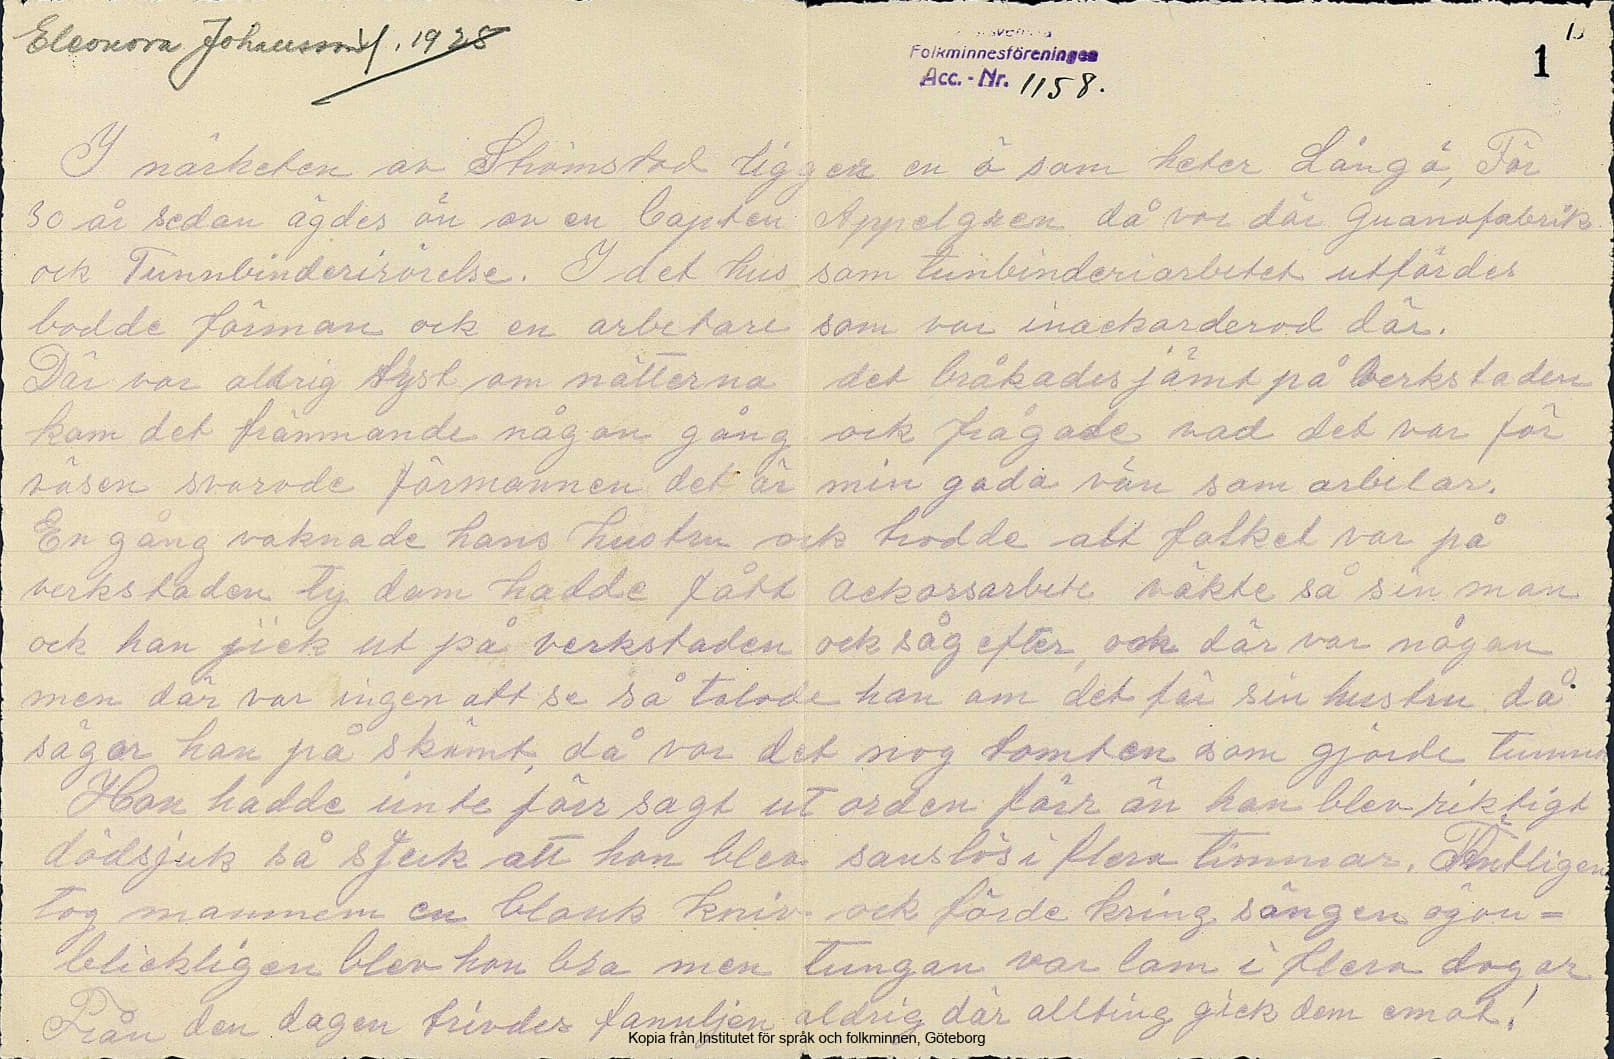 Eleonora Johansson /. 1928
Folkminnesföreningen
Acc. - Nr. 1158.
1
I närheten av Strömstad ligger en ö som heter Långö, För
30 år sedan ägdes ön av en Capten Appelgren då var där Guanofabrik
ock Tunnbinderirörelse. I det hus som tunbinderiarbetet utfördes
bodde förman ock en arbetare som var inackorderad där.
Där var aldrig tyst om nätterna det bråkades jämt på verkstaden
kom det främmande någon gång ock frågade vad det var för
väsen svarade förmannen det är min goda vän som arbetar.
En gång vaknade hans hustru ock trodde att folket var på
verkstaden ty dom hadde fått ackorsarbete väkte så sin man
ock han gick ut på verkstaden ock såg efter om där var någon
men där var ingen att se så talade han om det för sin hustru då
säger hon på skämt, då var det nog tomten som gjorde tunnor
Hon hadde inte förr sagt ut orden förr än hon blev riktigt
dödsjuk så sjuk att hon blev sanslös i flera timmar. Äntligen
tog mannem en blank kniv ock förde kring sängen ögon=
blickligen blev hon bra men tungan var lam i flera dagar
Från den dagen trivdes familjen aldrig där allting gick dem emot!
Kopia från Institutet för språk och folkminnen, Göteborg